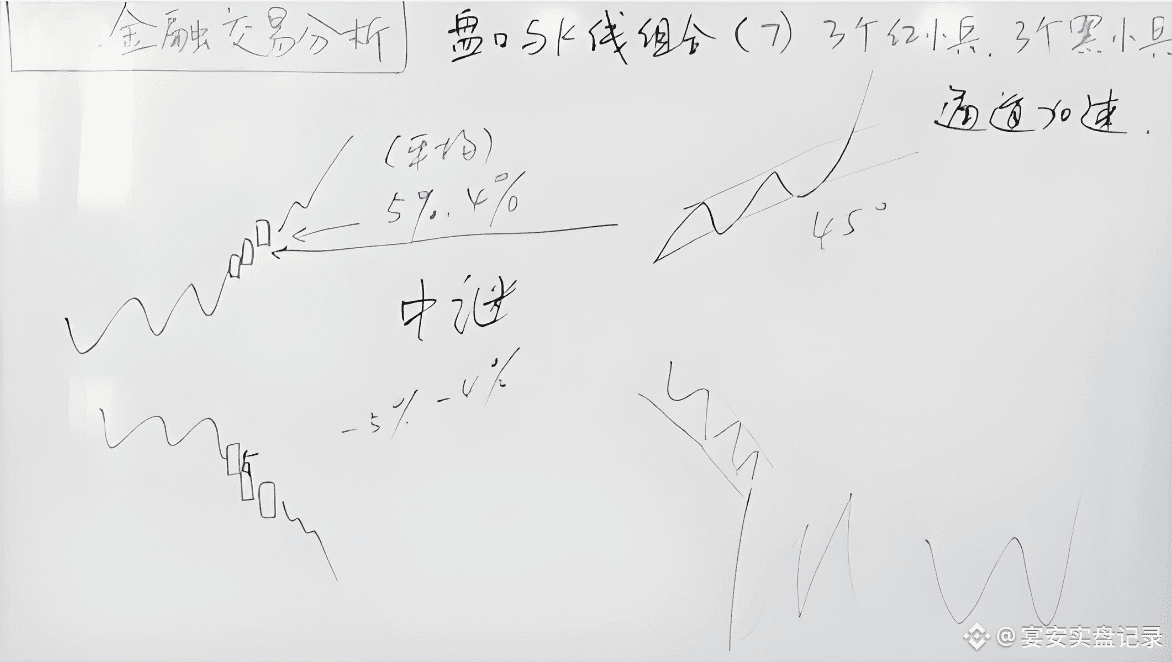 金融交易分析
盘口与K线组合(7) 3个红小兵. 3个黑小兵
通道加速.
(平均)
5%. 4%
45°
中继
-5% -4%
@宴安实盘记录